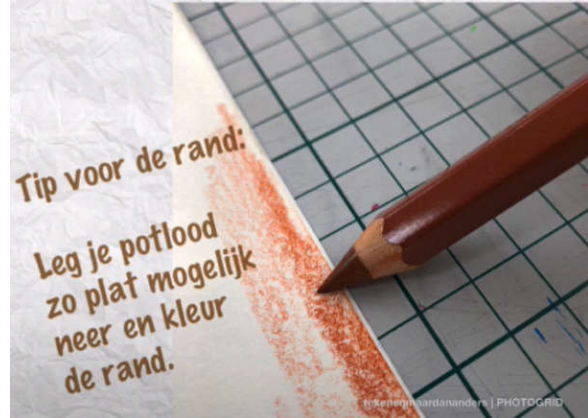 Tip voor de rand:
Leg je potlood
zo plat mogelijk
neer en kleur
de rand.
tekenenmaardananders | PHOTOGRID